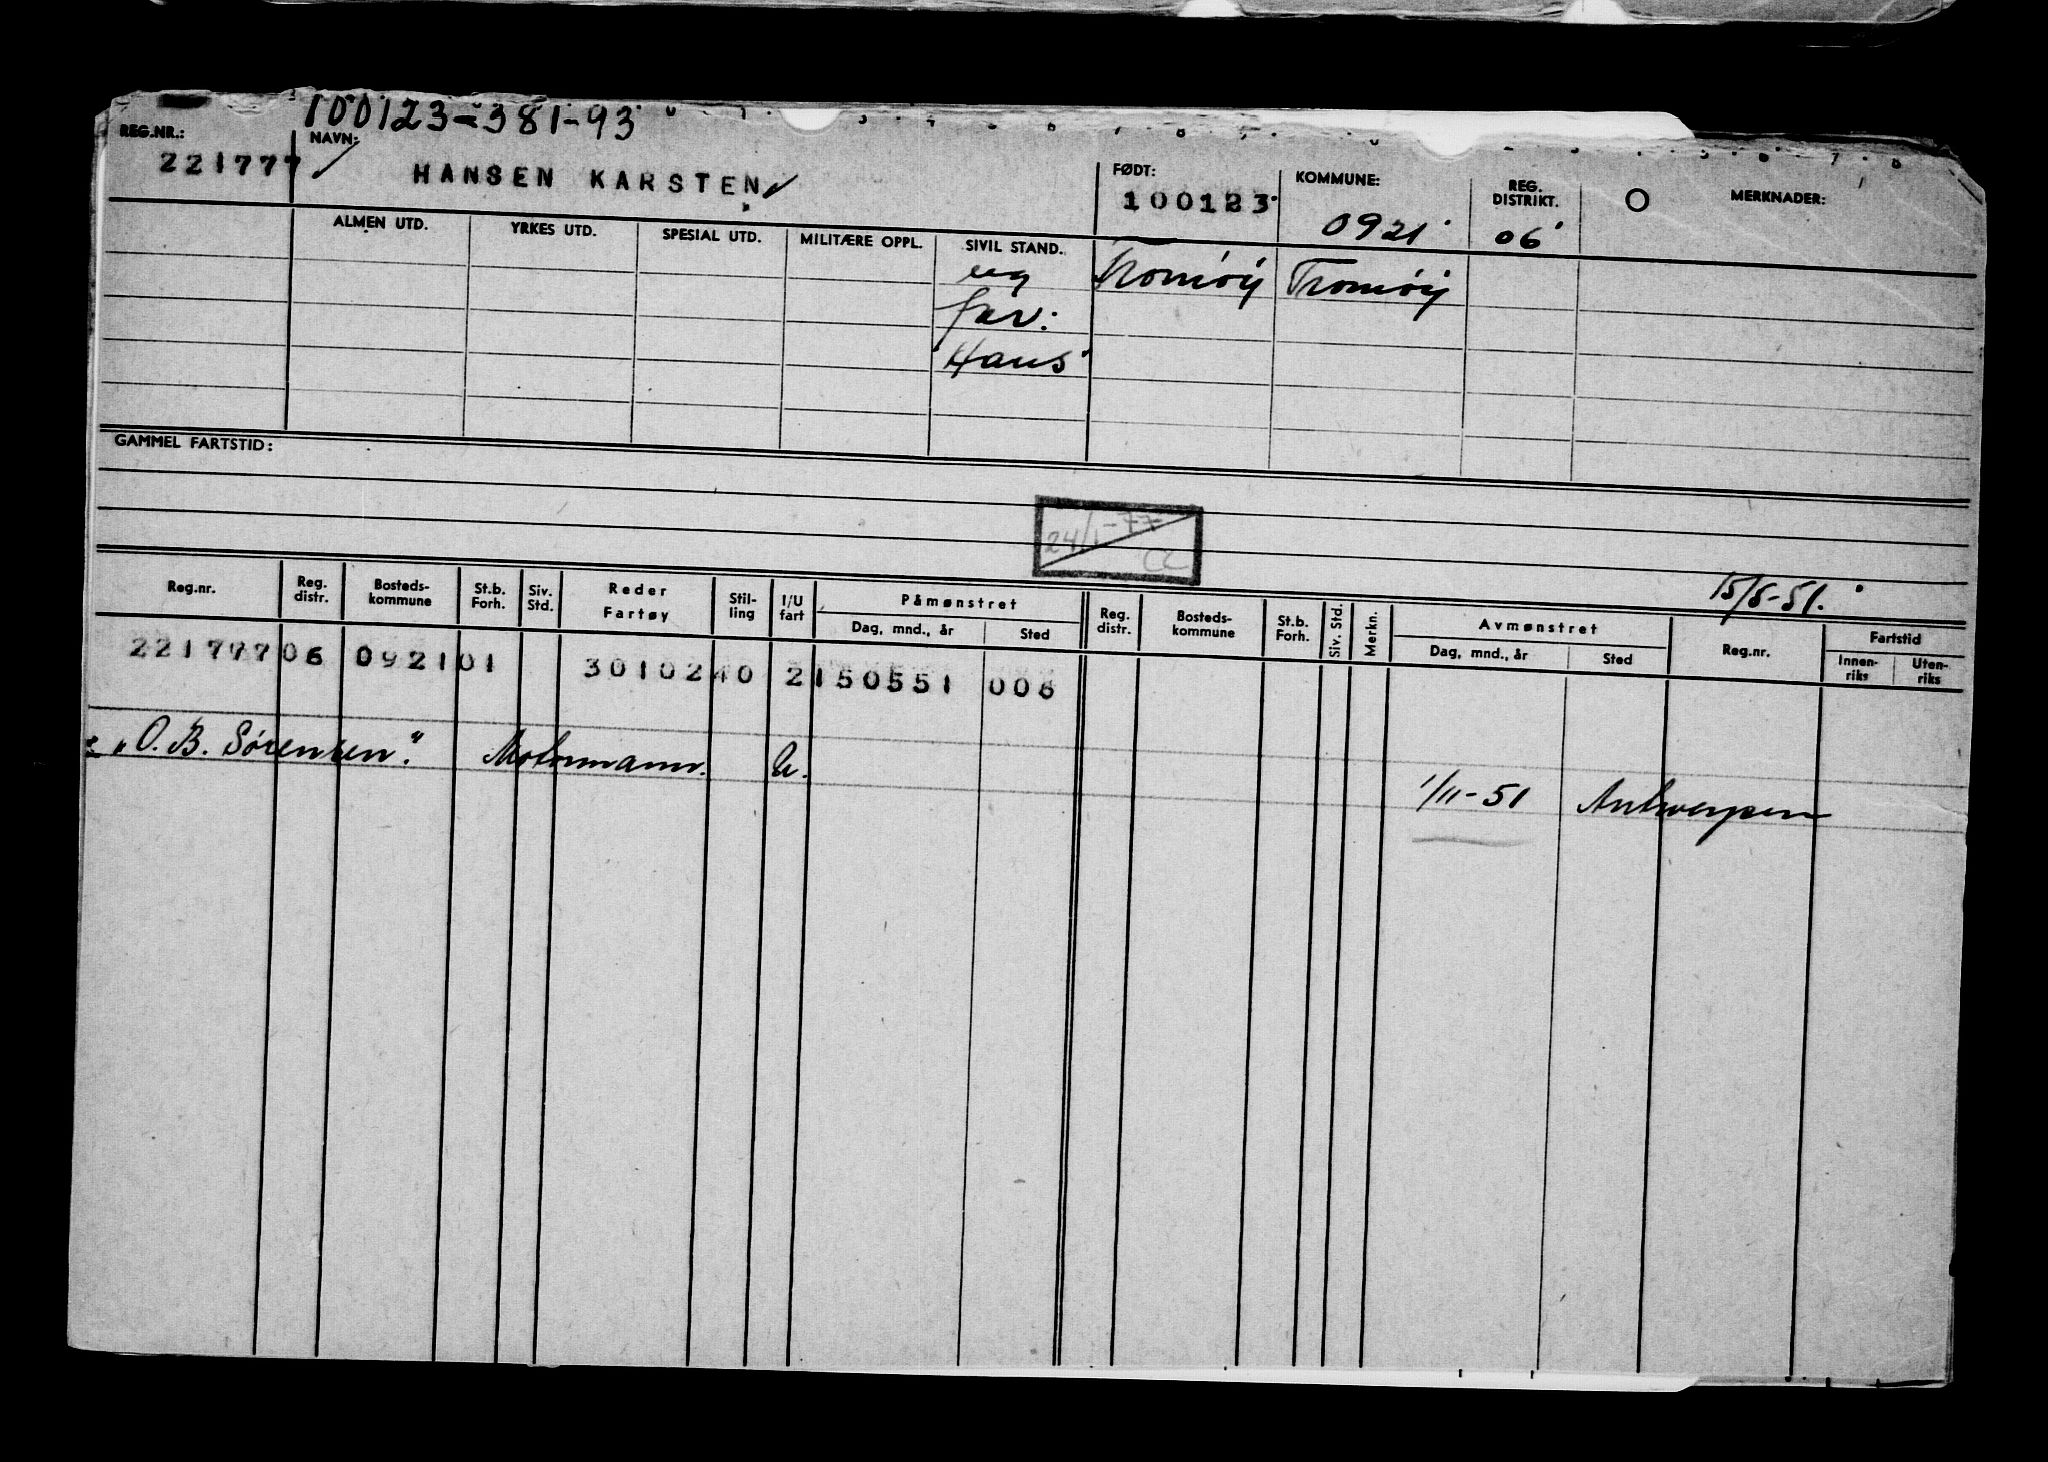 100123-381-93
REG.NR.: NAVN: FØDT: KOMMUNE: REG. DISTRIKT. MERKNADER:
221777 HANSEN KARSTEN 100123 0921 06
ALMEN UTD. YRKES UTD. SPESIAL UTD. MILITÆRE OPPL. SIVIL STAND.
ug Tromøy Tromøy
far:
Hans
GAMMEL FARTSTID:
24/1-77
CC
15/5-51.
Reg.nr. Reg. distr. Bosteds-kommune St.b. Forh. Siv. Std. Reder Fartøy Stil-ling I/U fart Påmønstret Dag, mnd., år Sted Reg. distr. Bosteds-kommune St.b. Forh. Siv. Std. Merkn. Avmønstret Dag, mnd., år Sted Reg.nr. Fartstid Innen-riks Uten-riks
221777 06 0921 01 3010240 2 150551 006
"O. B. Sørensen." Motormann. U.
1/11-51 Antwerpen